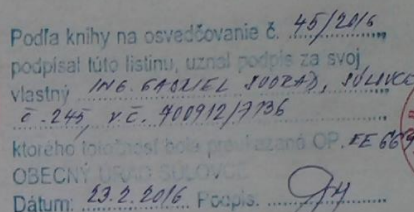 Podľa knihy na osvedčovanie č. 45/2016
podpísal túto listinu, uznal podpis za svoj
vlastný ING. GABRIEL SOORÁD, SÚLOVCE
č. 245, r.č. 700912/7736
ktorého totožnosť bola preukázaná OP. EE 669
OBECNÝ ÚRAD SÚLOVCE
Dátum: 23.2.2016 Podpis: